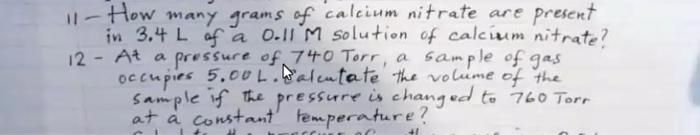 11 - How many grams of calcium nitrate are present
in 3.4 L of a 0.11 M solution of calcium nitrate?
12 - At a pressure of 740 Torr, a sample of gas
occupies 5.00 L. Calculate the volume of the
sample if the pressure is changed to 760 Torr
at a constant temperature?